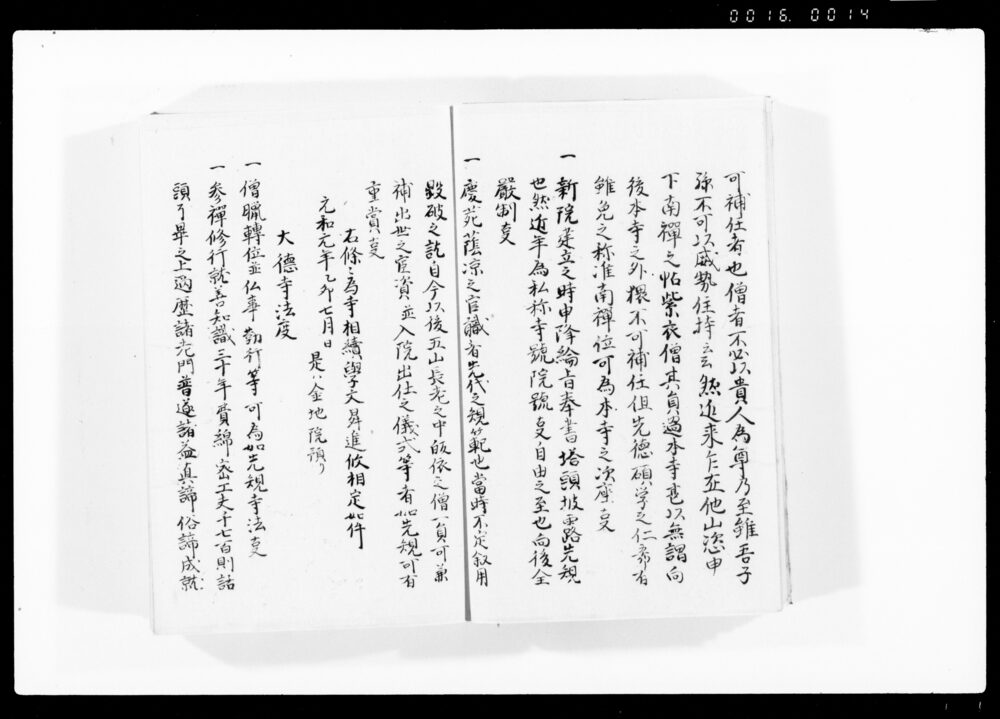 0016. 0014
可補住者也僧者不必以貴人為尊乃至雖吾子
孫不可以威勢住持云云然近来乍在他山恣申
下南禅之帖紫衣僧其員過本寺甚以無謂向
後本寺之外擯不可補住但先徳碩学之仁希有
雖免之称准南禅位可為本寺之次座叓
一 新院建立之時申降綸旨奉書塔頭披露先規
也然近年為私称寺號院號叓自由之至也向後全
嚴制叓
一 慶苑蔭凉之官職者先代之規範也當時不定叙用
毀破之訖自今以後五山長老之中皈依之僧一員可兼
補出世之官資並入院出仕之儀式等者如先規可有
重賞叓
右條々為寺相續與学文昇進攸相定如件
元和元年乙卯七月日 是ハ金地院預り
大徳寺法度
一 僧臘轉位並仏事勤行等可為如先規寺法叓
一 参禅修行就善知識三十年費綿密工夫千七百則話
頭了畢之上遍歴諸老門普遂請益真諦俗諦成就